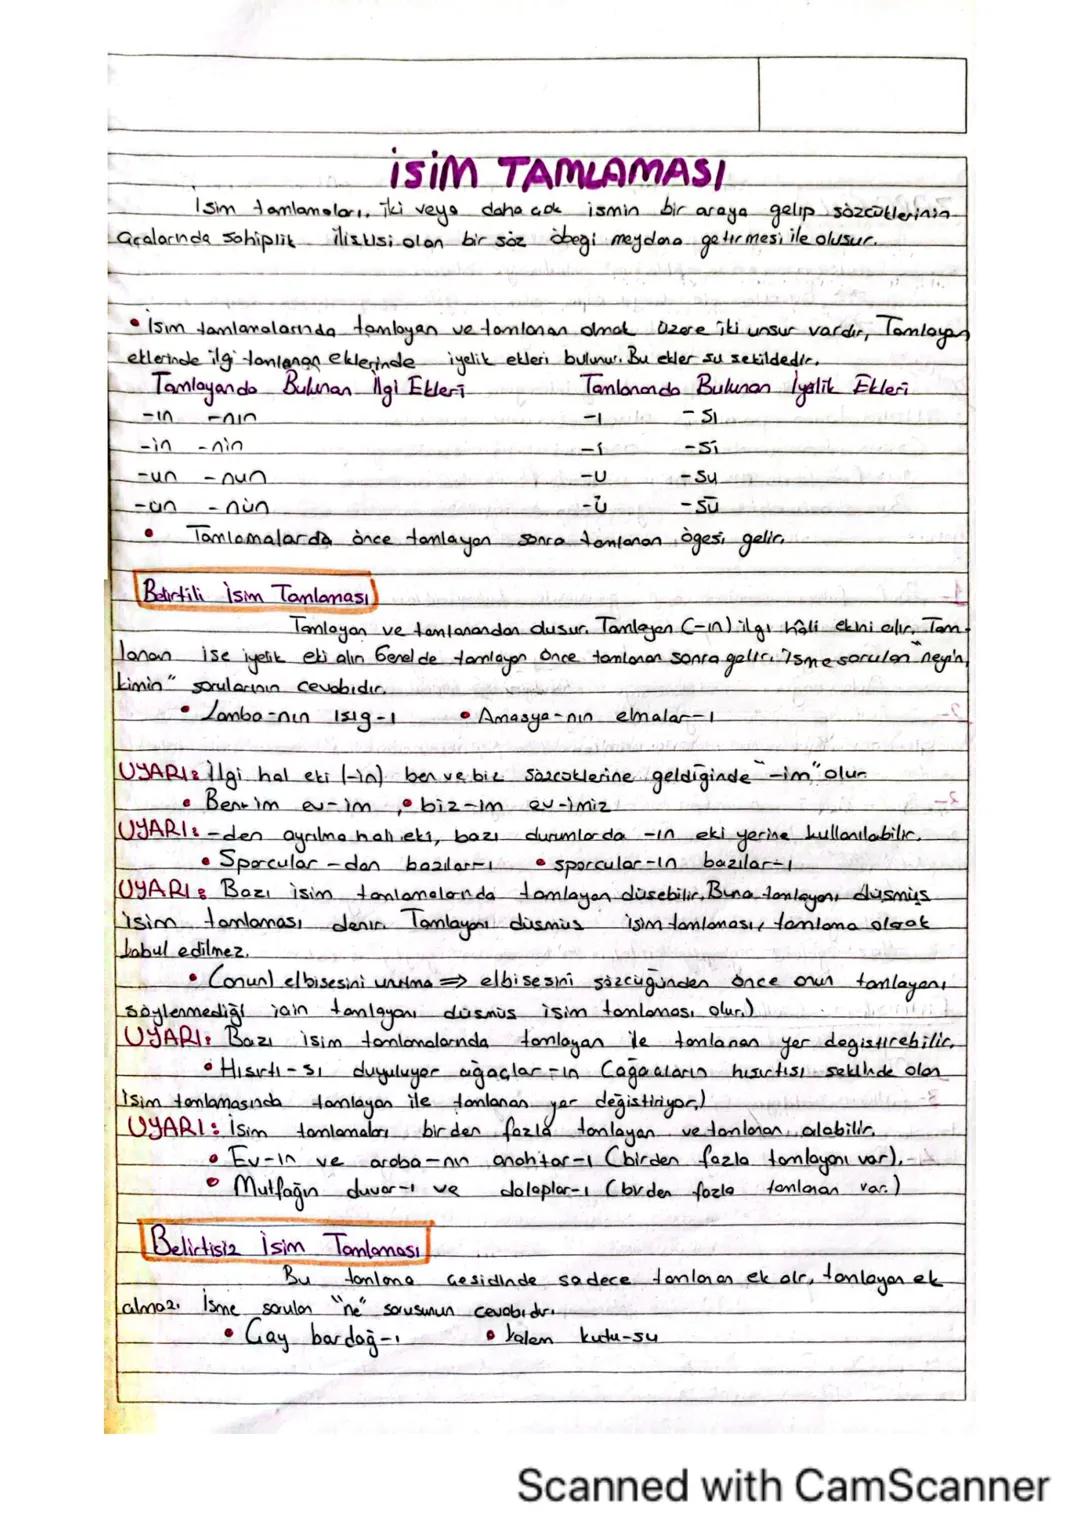 İSİM TAMLAMASI
İsim tamlamaları, iki veya daha çok ismin bir araya gelip sözcüklerinin
aralarında sahiplik ilişkisi olan bir söz öbeği meydana getirmesi ile oluşur.
• İsim tamlamalarında tamlayan ve tamlanan olmak üzere iki unsur vardır, Tamlayan
eklerinde ilgi tamlanan eklerinde iyelik ekleri bulunur. Bu ekler şu şekildedir.
Tamlayanda Bulunan İlgi Ekleri Tamlananda Bulunan İyelik Ekleri
-ın -nın -ı -sı
-in -nin -i -si
-un -nun -u -su
-ün -nün -ü -sü
• Tamlamalarda önce tamlayan sonra tamlanan ögesi gelir.
Belirtili İsim Tamlaması
Tamlayan ve tamlanandan oluşur. Tamlayan (-ın) ilgi hâli ekni alır. Tam-
lanan ise iyelik eki alın Genelde tamlayan önce tamlanan sonra gelir. İsme sorulan "neyin,
kimin" sorularının cevabıdır.
• Lamba-nın ışığ-ı • Amasya-nın elmalar-ı
UYARI: İlgi hal eki (-in) ben ve biz sözcüklerine geldiğinde "-im" olur
• Ben-im ev-im, • biz-im ev-imiz
UYARI: -den ayrılma hali eki, bazı durumlarda -ın eki yerine kullanılabilir.
• Sporcular-dan bazılar-ı • sporcular-ın bazılar-ı
UYARI: Bazı isim tamlamalarında tamlayan düşebilir. Buna tamlayanı düşmüş
isim tamlaması denir. Tamlayanı düşmüş isim tamlaması, tamlama olarak
kabul edilmez.
• (onun) elbisesini unutma ⇒ elbisesini sözcüğünden önce onun tamlayanı
söylenmediği için tamlayanı düşmüş isim tamlaması olur.)
UYARI: Bazı isim tamlamalarında tamlayan ile tamlanan yer değiştirebilir.
• Hışırtı-sı duyuluyor ağaçlar-ın (ağaçların hışırtısı şeklinde olan
isim tamlamasında tamlayan ile tamlanan yer değiştiriyor.)
UYARI: İsim tamlamaları birden fazla tamlayan ve tamlanan alabilir.
• Ev-in ve araba-nın anahtar-ı (birden fazla tamlayanı var).
• Mutfağın duvar-ı ve dolaplar-ı (birden fazla tamlanan var.)
Belirtisiz İsim Tamlaması
Bu tamlama çeşidinde sadece tamlanan ek alır, tamlayan ek
almaz. İsme sorulan "ne" sorusunun cevabıdır.
• Çay bardağ-ı • Kalem kutu-su
Scanned with CamScanner